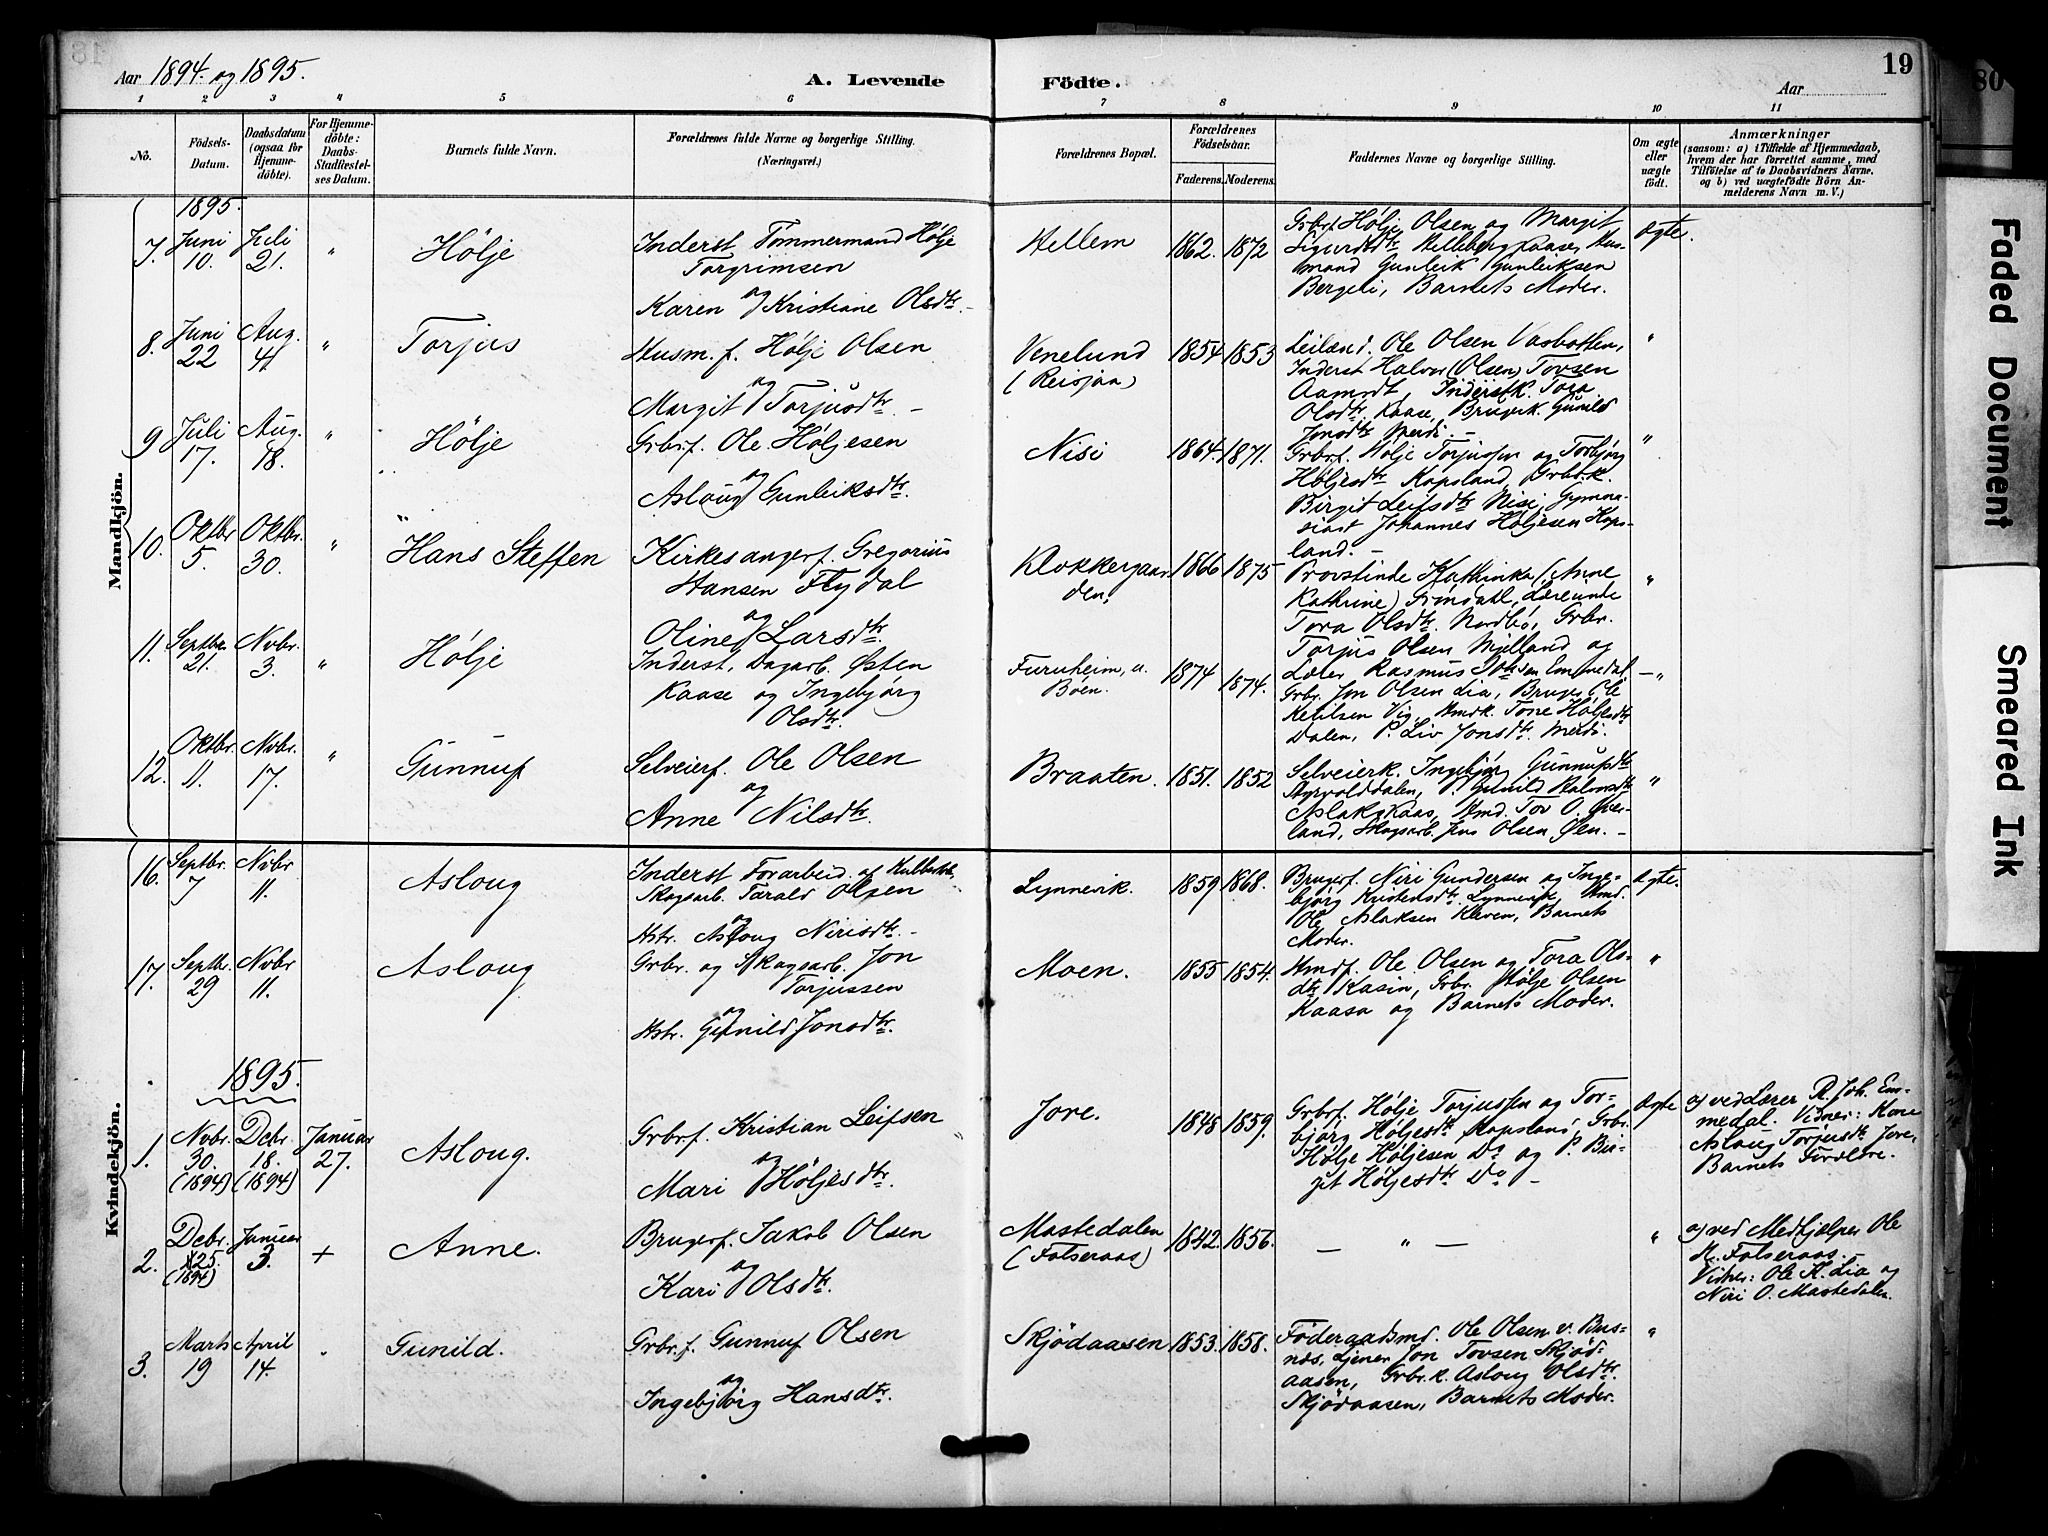 Aar 1894. og 1895.
A. Levende Födte.
Aar
19
1 2 3 4 5 6 7 8 9 10 11
No.
Födsels-Datum.
Daabsdatum (ogsaa for Hjemme-döbte).
For Hjemme-döbte: Daabs-Stadfæstel-ses Datum.
Barnets fulde Navn.
Forældrenes fulde Navne og borgerlige Stilling. (Næringsvei.)
Forældrenes Bopæl.
Forældrenes Födselsaar.
Faderens. Moderens.
Faddernes Navne og borgerlige Stilling.
Om ægte eller uægte födt.
Anmærkninger
(saasom: a) i Tilfælde af Hjemmedaab,
hvem der har forrettet samme, med
Tilföielse af to Daabsvidners Navne,
og b) ved uægtefödte Börn An-
melderens Navn m. V.)
Mandkjön.
1895.
7. Juni 10. Juli 21. " Hölje
Inderst Tömmermand Hölje
Torgrimsen
og
Karen Kristiane Olsdtr.
Hellem 1862. 1872
Grbrf. Hølje Olsen og Margit
Sigurdsdtr Helleberg Kaase, Hus-
mand Gunleik Gunleiksen
Bergeli, Barnets Moder.
ægte.
8. Juni 22 Aug. 4 " Torjus
Husm. f. Hølje Olsen
og
Margit Torjusdtr. -
Venelund
(Reisjaa)
1854 1853
Leilænd. Ole Olsen Vasbotten,
Inderst Halvor (Olsen) Tovsen
Aamodt, Inderstk. Tora
Olsdtr. Kaase, Brugerk. Gunild
Jonsdtr Merdi. -
"
9 Juli 17. Aug. 18. " Hölje
Grbr.f. Ole Höljesen
og
Aslaug Gunleiksdtr.
Nisi 1864. 1871.
Grbrf. Hölje Torjussen og Torbjörg
Höljesdtr Kopsland, Grbr.k.
Birgit Leifsdtr Nisi, Gymna-
siast Johannes Höljesen Kops-
land. -
"
10. Oktbr 5. Oktbr. 30. " Hans Steffen
Kirkesangerf. Gregorius
Hansen Flydal
og
Oline Larsdtr.
Klokkergaar-
den,
1866 1875
Provstinde Kathinka (Anne
Kathrine) Gröndahl, Lærerinde
Tora Olsdtr. Nordbö, Grbr.
Torjus Olsen Mjelland og
Lærer Rasmus Johsen Emmedal.
"
11. Septbr. 21. Novbr. 3. " Hölje
Inderst, Dagarb. Østen
Kaase og Ingebjørg
Olsdtr.
Furuheim, u.
Böen.
1874 1874.
Grbr. Jon Olsen Lia, Bruger Ole
Ketilsen Vig, Hmdk. Tone Höljesdtr
Dalen, P. Liv Jonsdtr. Merdi.
- "
12. Oktbr. 11. Novbr. 17. " Gunnuf
Selveierf. Ole Olsen
og
Anne Nilsdtr.
Braaten. 1851. 1852
Selveierk. Ingebjör Gunnufsdtr
Styrvolddalen, P. Gunild Halvorsdtr
Aslak Kaas, Hmd. Tov O. Øver-
land, Skogsarb. Jens Olsen Øen. -
"
Kvindekjön.
16. Septbr. 7 Novbr 11. Aslaug
Inderst Forarbeid. af
Skogsarb. Tarald Olsen
og
Hstr. Aslaug Nirisdtr. -
Lynnevik. 1859 1868.
Brugerf. Niri Gundersen og Inge-
björg Kristensdtr. Lynnevik, Hmd.
Ole Aslaksen Kleven, Barnets
Moder.
ægte.
17. Septbr. 29 Novbr 11. Aslaug
Grbr. og Skogsarb. Jon
Torjussen
og
Hstr. Gunild Jonsdtr.
Moen. 1855 1854.
Hmdf. Ole Olsen og Tora Ols-
dtr Kasin, Grbr. Hølje Olsen
Kaasa og Barnets Moder.
"
1895.
1. Novbr. 30. (1894) Dcbr. 18. (1894) Januar 27. Aslaug.
Grbrf. Kristian Leifsen
og
Mari Höljesdtr.
Jore. 1848 1859.
Grbrf. Hölje Torjussen og Tor-
björg Höljesdtr Kopsland, Grbr.
Hølje Höljesen Do og P. Bir-
git Höljesdtr Do -
ægte
a) ved Lærer R. Joh. Em-
medal. Vidner: Kone
Aslaug Torjusdtr. Jore,
Barnets Forældre.
2. Dcbr. 25. (1894) Januar 3. + Anne.
Brugerf. Jakob Olsen
og
Kari Olsdtr.
Mastedalen
(Folseraas)
1842. 1856.
- " -
"
a) ved Medhjælper Ole
H. Folseraas.
Vidner: Ole K. Lia og
Niri O. Mastedalen.
3. Marts 19 April 14. " Gunild.
Grbr.f. Gunnuf Olsen
og
Ingebjörg Hansdtr.
Skjödaasen 1853. 1858.
Föderaadsmd. Ole Olsen v. Bus-
nes, Tjener Jon Tovsen Skjöd-
aasen, Grbr.k. Aslaug Olsdtr.
Skjödaasen, Barnets Moder.
"
80
Faded Document
Smeared Ink